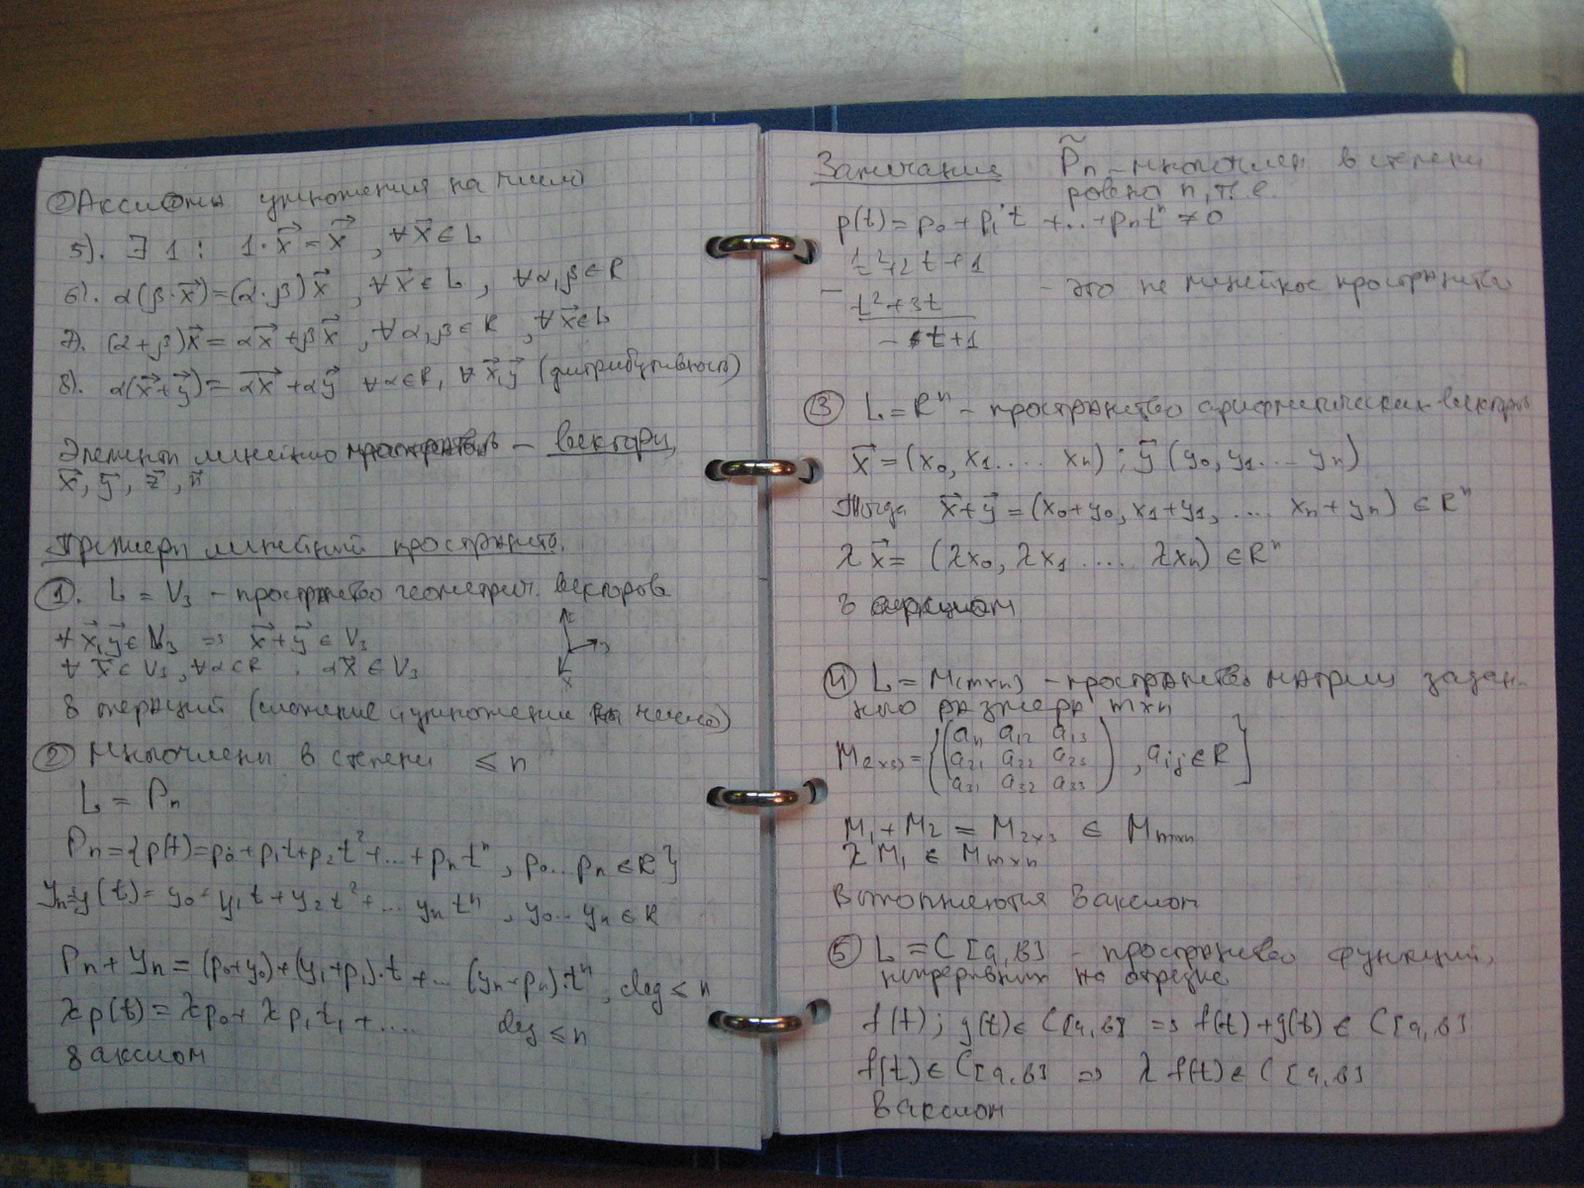 ② Аксиомы умножения на число
5). ∃ 1 : 1·x⃗ = x⃗ , ∀x⃗ ∈ L
6). α(β·x⃗)=(α·β)x⃗ , ∀x⃗ ∈ L , ∀α,β ∈ R
7). (α+β)x⃗ = αx⃗ + βx⃗ , ∀α,β ∈ R , ∀x⃗ ∈ L
8). α(x⃗+y⃗) = αx⃗ + αy⃗ ∀α∈R, ∀x⃗,y⃗ (дистрибутивность)
Элемент линейно пространств – вектори,
x⃗, y⃗, z⃗, n⃗
Примеры линейний пространств.
①. L = V₃ – пространство геометрич. векторов
∀ x⃗, y⃗ ∈ V₃ ⇒ x⃗+y⃗ ∈ V₃
∀ x⃗ ∈ V₃, ∀α∈R , αx⃗ ∈ V₃
8 операций (сложение и умножение на число)
② Многочлены в степени ≤ n
L = Pₙ
Pₙ={p(t)=p₀+p₁t+p₂t²+...+pₙtⁿ, p₀...pₙ∈R}
Yₙ=y(t)= y₀+y₁t+y₂t²+...yₙtⁿ, y₀...yₙ∈R
Pₙ+Yₙ=(p₀+y₀)+(y₁+p₁)·t+...(yₙ+pₙ)·tⁿ, deg ≤ n
λp(t)=λp₀+λp₁t₁+.... deg ≤ n
8 аксиом
Замечание P̃ₙ – многочлен в степени
равно n, т.е.
p(t)=p₀+p₁·t+...+pₙtⁿ ≠ 0
t²+2t+1
– t²+3t – это не линейное пространство
-t+1
③ L=Rⁿ – пространство арифметических векторов
x⃗=(x₀, x₁.... xₙ); y⃗(y₀, y₁... yₙ)
Тогда x⃗+y⃗=(x₀+y₀, x₁+y₁, .... xₙ+yₙ) ∈ Rⁿ
λx⃗= (λx₀, λx₁ .... λxₙ) ∈ Rⁿ
8 аксиом
④ L = M(m×n) – пространство матриц задан-
ного размера m×n
M(2×3)={(a₁₁ a₁₂ a₁₃
a₂₁ a₂₂ a₂₃
a₃₁ a₃₂ a₃₃), aᵢⱼ∈R}
M₁+M₂ = M₂ₓ₃ ∈ Mₘₓₙ
λM₁ ∈ Mₘₓₙ
Выполняются 8 аксиом
⑤ L = C[a,b] – пространство функций,
непрерывных на отрезке
f(t); y(t)∈ C[a,b] ⇒ f(t)+y(t) ∈ C[a,b]
f(t)∈ C[a,b] ⇒ λf(t)∈ C[a,b]
8 аксиом